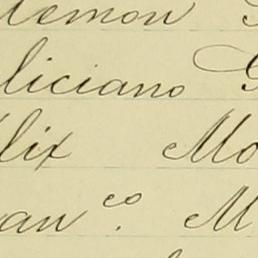 lemon
liciano G
lix Mo
an co. M